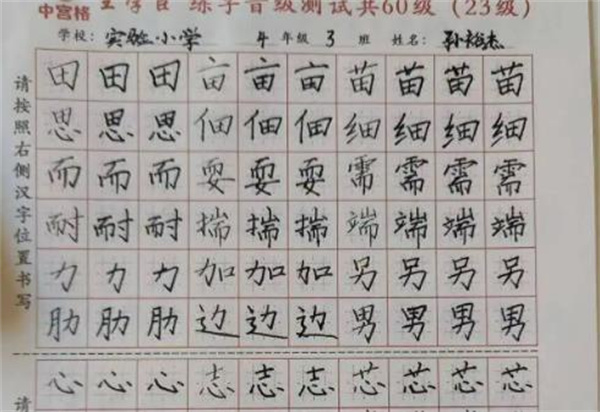 中宫格 练字晋级测试共60级（23级）
学校：实验小学 4年级 3班 姓名：孙裕杰
请按照右侧汉字位置书写
田田田亩亩亩苗苗苗苗
思思思佃佃佃细细细细
而而而耍耍耍需需需需
耐耐耐揣揣揣端端端端
力力力加加加另另另另
肋肋肋边边边男男男男
请
心心心志志志芯芯芯芯